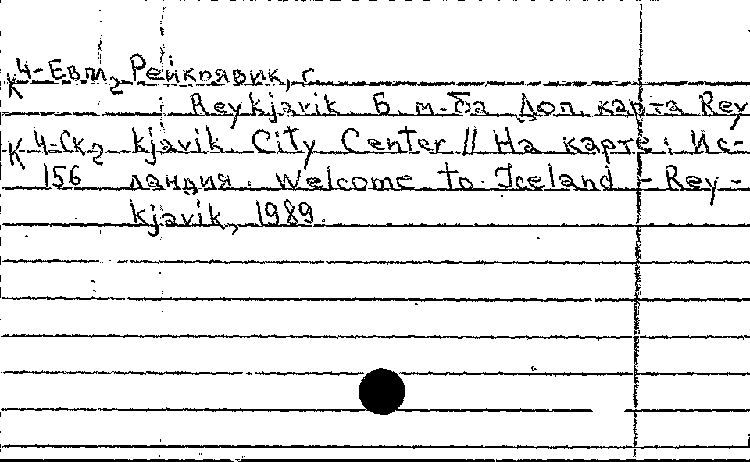 К 4-Евл2 Рейкьявик, г.
Reykjavik. Б. м-ба Доп. карта Rey
К 4-Ск2 kjavik. City Center // На карте: Ис-
156 ландия. Welcome to Iceland - Rey-
kjavik, 1989.